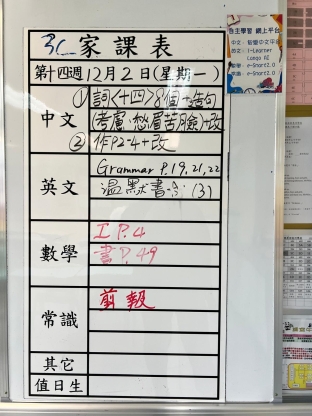 3C 家課表
第十四週12月2日(星期一)
中文
①詞<十四>8個+造句
(考慮、愁眉苦臉)+改
②作P2-4+改
英文
Grammar P.19,21,22
溫默書(3)
數學
I P.4
書P.49
常識
剪報
其它
值日生
自主學習 網上平台
中文:智愛中文平台
英文:i-Learner
Lango AI
數學:e-Smart2.0
常識:e-Smart2.0